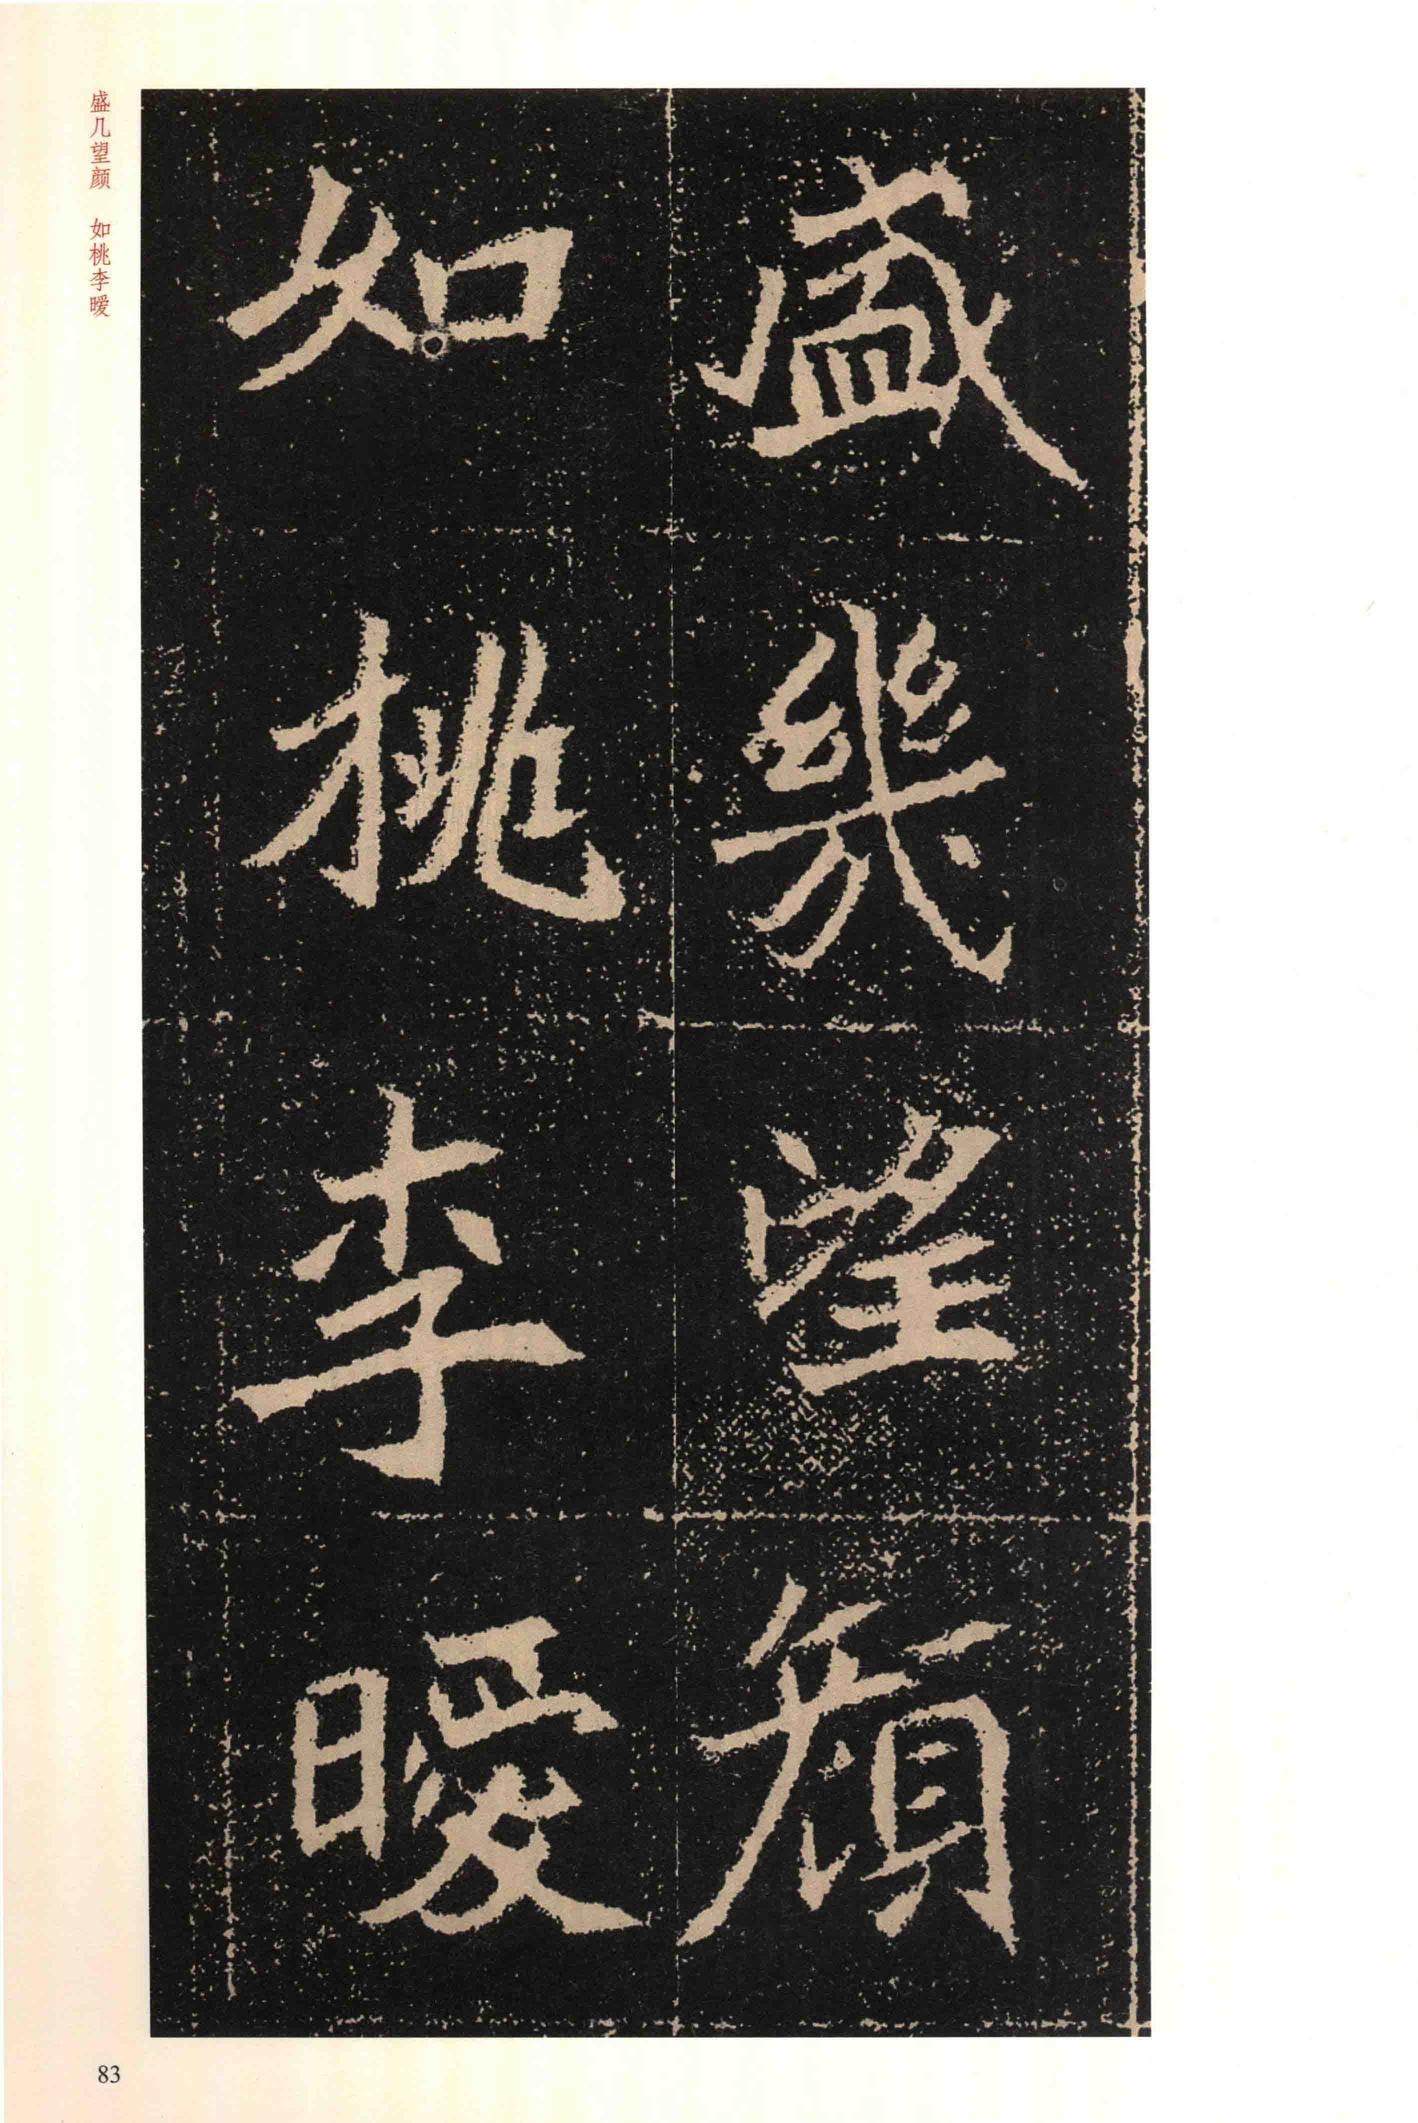 盛幾望顔
如桃李曖
盛几望颜 如桃李暧
83